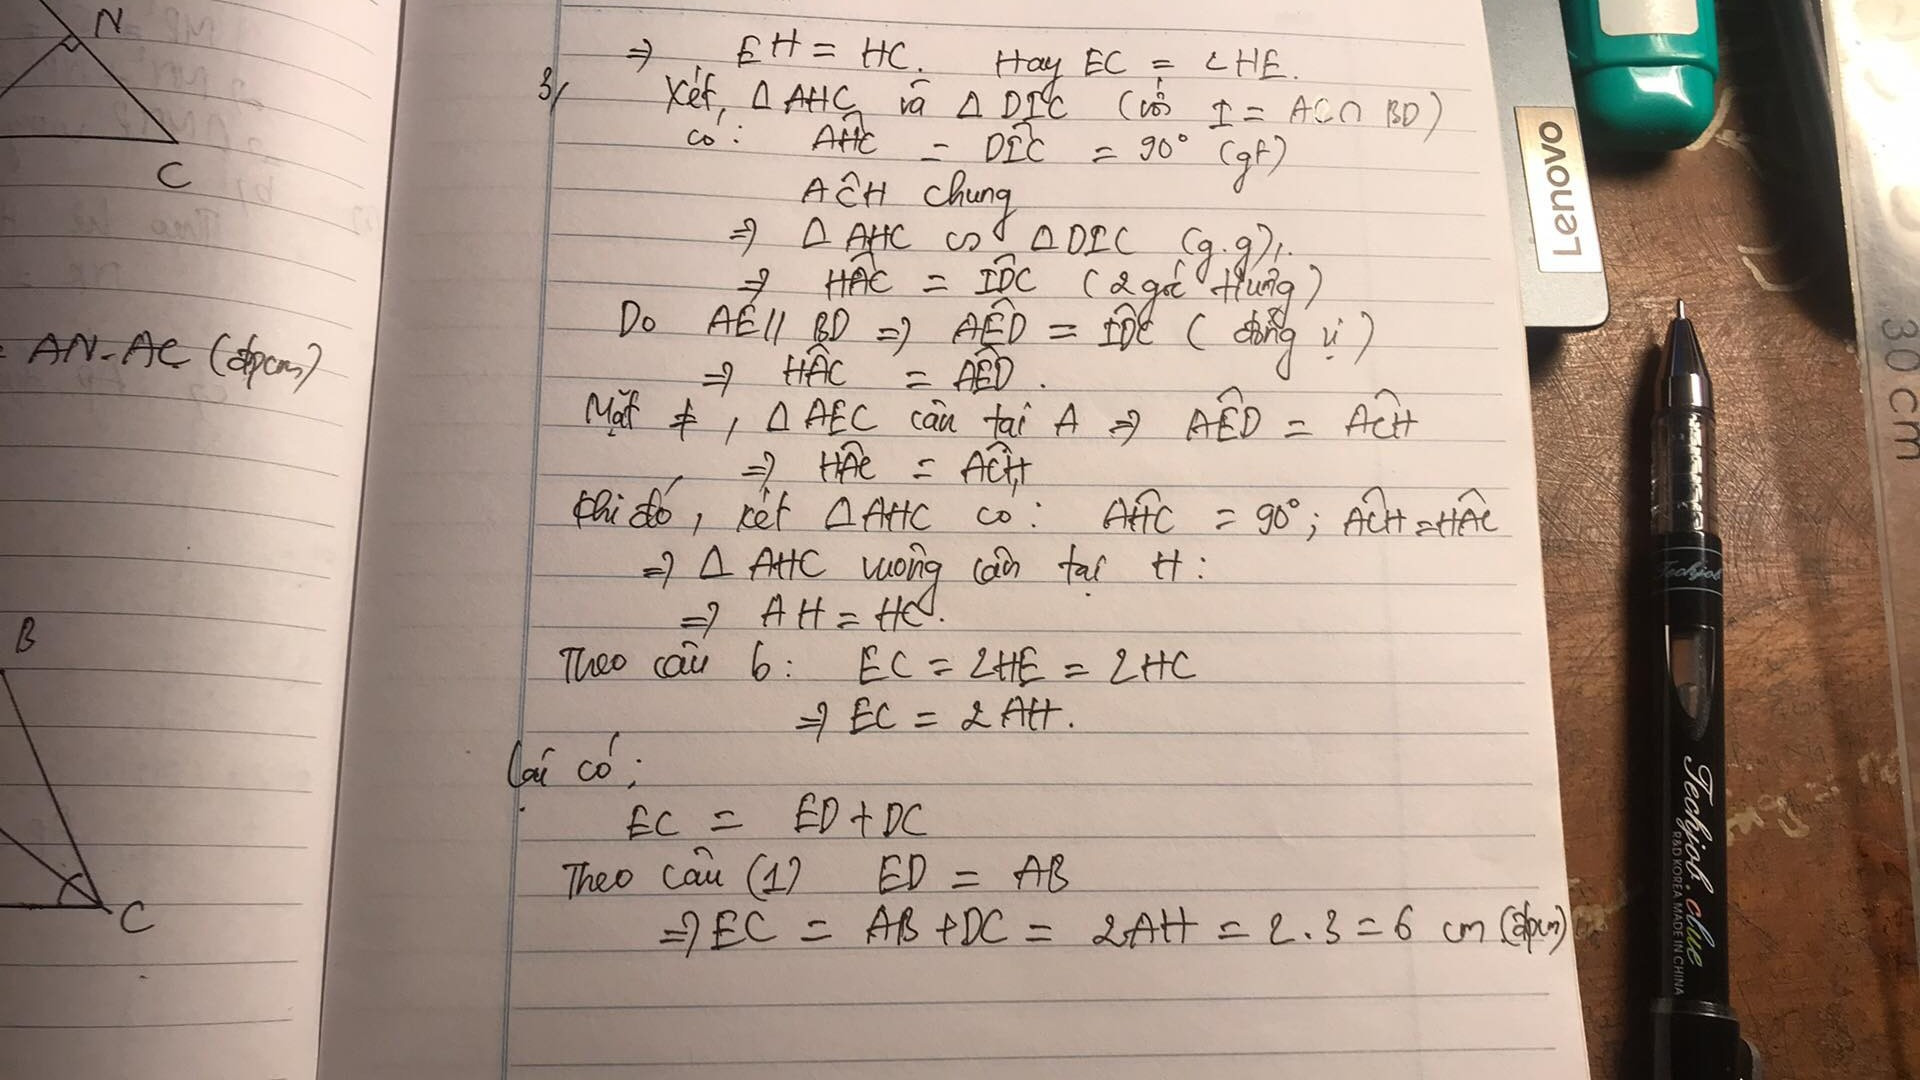 N
C
= AN.AC (đpcm)
B
C
=> EH = HC. Hay EC = 2HE.
3, Xét, Δ AHC và Δ DIC (với I = AC ∩ BD)
có: AHC = DIC = 90° (gt)
ACH chung
=> Δ AHC ∽ Δ DIC (g.g).
=> HAC = IDC (2 góc tứ)
Do AE // BD => AED = IDC (đồng vị)
=> HAC = AED.
Mặt ≠, Δ AEC cân tại A => AED = ACH
=> HAC = ACH
Khi đó, xét Δ AHC có: AHC = 90°; ACH = HAC
=> Δ AHC vuông cân tại H:
=> AH = HC.
Theo câu b: EC = 2HE = 2HC
=> EC = 2AH.
Lại có:
EC = ED + DC
Theo câu (1) ED = AB
=> EC = AB + DC = 2AH = 2.3 = 6 cm (đpcm)
Lenovo
30 cm
Techjob
Techjob.clue
R&D KOREA. MADE IN CHINA